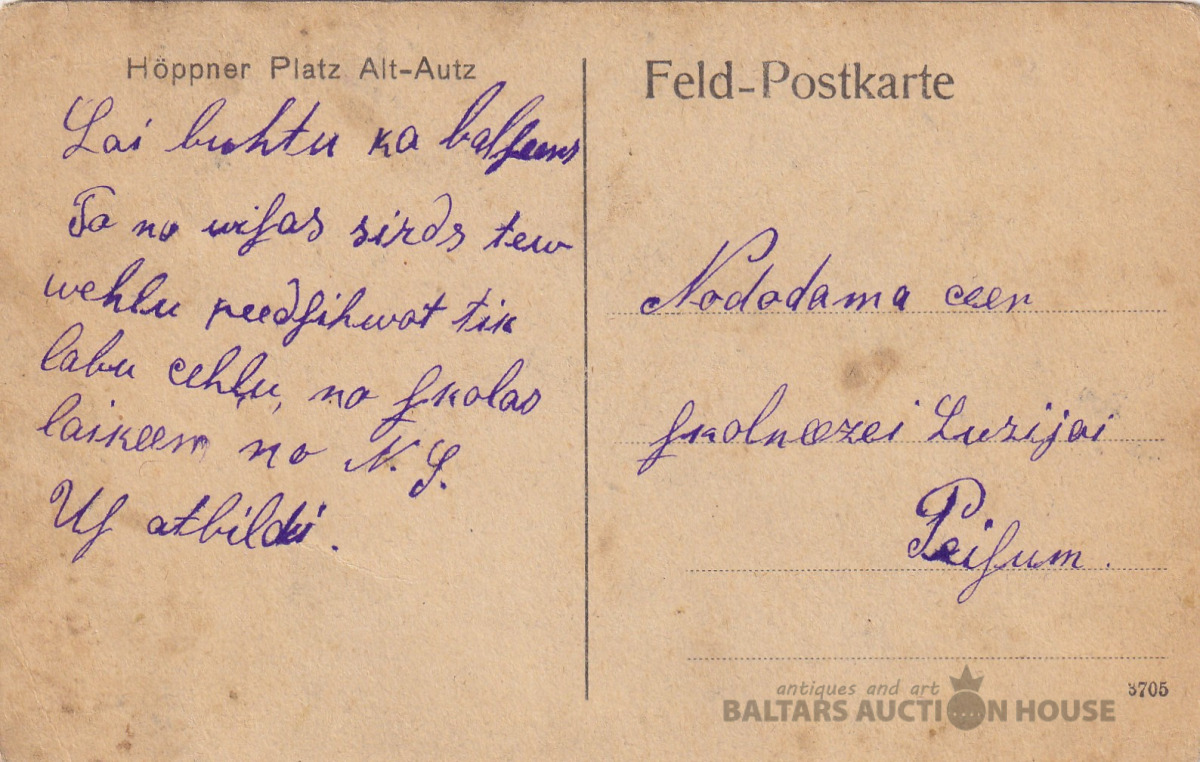 Höppner Platz Alt-Autz
Lai buhtu ka
To no wiſas sirds tew
wehlu peedſihwot tik
labu cehlu, no ſkolas
laikeem no N. S.
Uſ atbildi.
Feld-Postkarte
Nododama ceen
ſkolneezei Luzijai
Peiſum.
3705
antiques and art
BALTARS AUCTION HOUSE